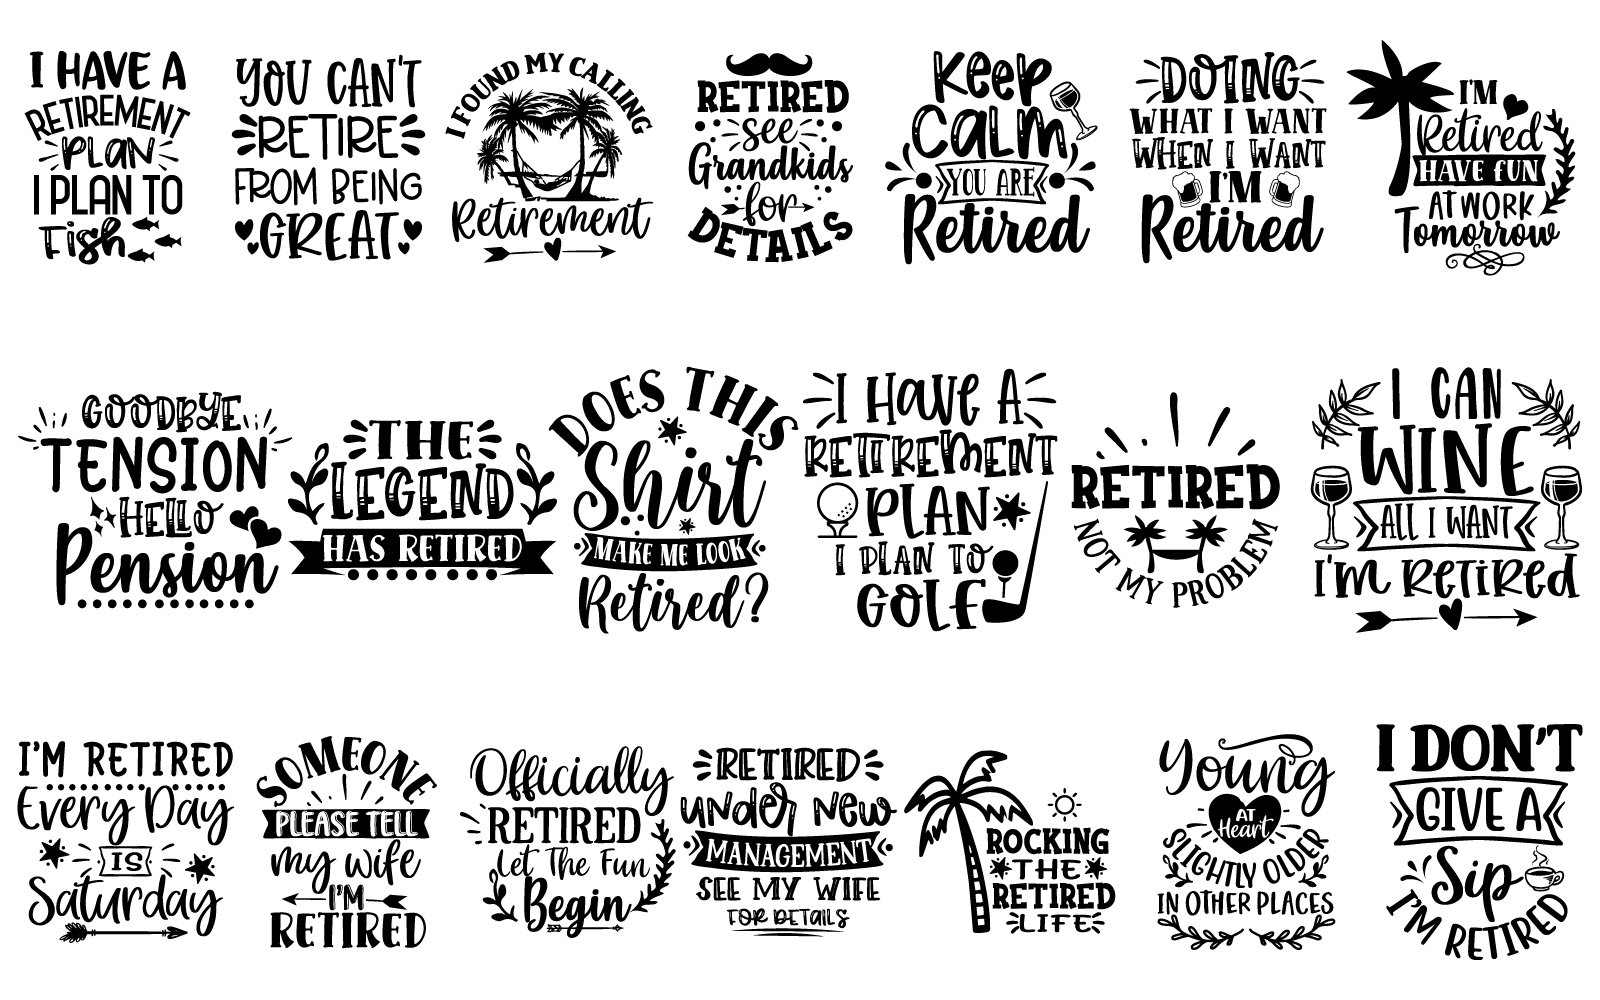 I HAVE A
RETIREMENT
PLAN
I PLAN TO
Fish
YOU CAN'T
RETIRE
FROM BEING
GREAT
I FOUND MY CALLING
Retirement
RETIRED
see
Grandkids
for
DETAILS
Keep
CALM
YOU ARE
Retired
DOING
WHAT I WANT
WHEN I WANT
I'M
Retired
I'M
Retired
HAVE FUN
AT WORK
Tomorrow
GOODBYE
TENSION
HELLO
Pension
THE
LEGEND
HAS RETIRED
DOES THIS
Shirt
MAKE ME LOOK
Retired?
I HAVE A
RETIREMENT
PLAN
I PLAN TO
GOLF
RETIRED
NOT MY PROBLEM
I CAN
WINE
ALL I WANT
I'M RETIRED
I'M RETIRED
Every Day
IS
Saturday
SOMEONE
PLEASE TELL
my wife
I'M
RETIRED
Officially
RETIRED
Let The Fun
Begin
RETIRED
under new
MANAGEMENT
SEE MY WIFE
FOR DETAILS
ROCKING
THE
RETIRED
LIFE
Young
AT
Heart
SLIGHTLY OLDER
IN OTHER PLACES
I DON'T
GIVE A
Sip
I'M RETIRED